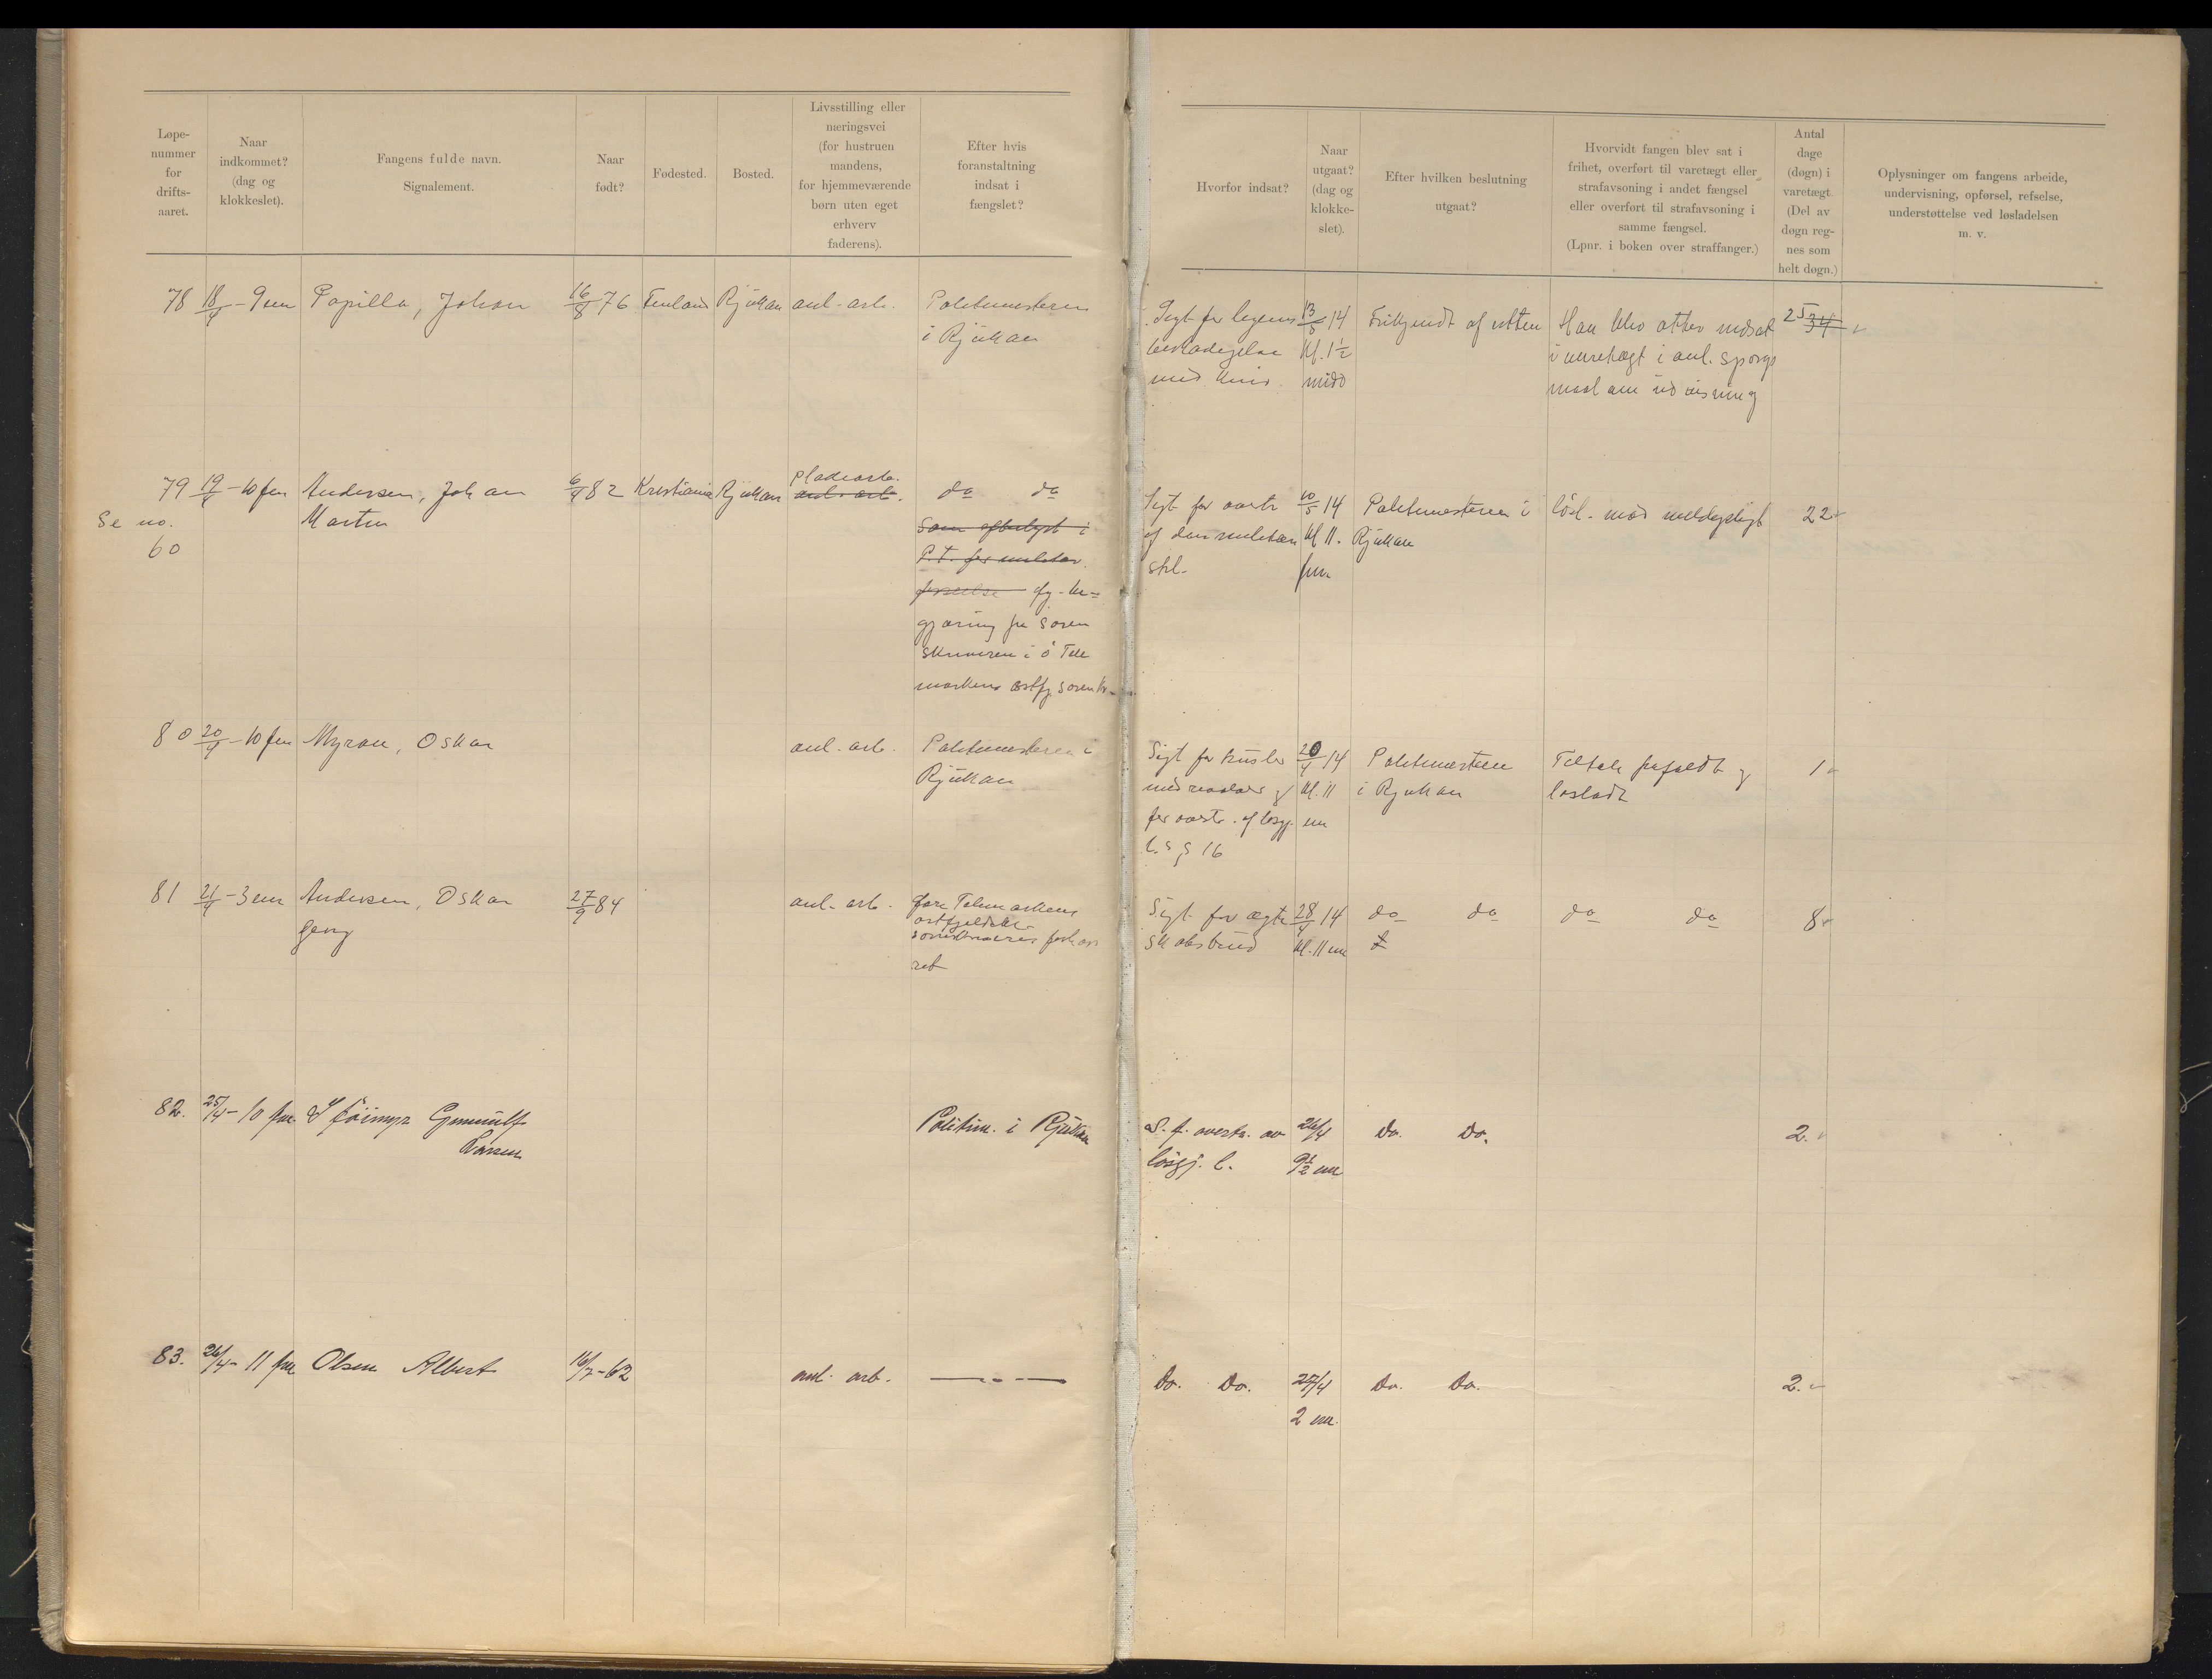 Løpe-
nummer
for
drifts-
aaret.
Naar
indkommet?
(dag og
klokkeslet).
Fangens fulde navn.
Signalement.
Naar
født?
Fødested.
Bosted.
Livsstilling eller
næringsvei
(for hustruen
mandens,
for hjemmeværende
børn uten eget
erhverv
faderens).
Efter hvis
foranstaltning
indsat i
fængslet?
Hvorfor indsat?
Naar
utgaat?
(dag og
klokke-
slet).
Efter hvilken beslutning
utgaat?
Hvorvidt fangen blev sat i
frihet, overført til varetægt eller
strafavsoning i andet fængsel
eller overført til strafavsoning i
samme fængsel.
(Lpnr. i boken over straffanger.)
Antal
dage
(døgn) i
varetægt
(Del av
døgn reg-
nes som
helt døgn.)
Oplysninger om fangens arbeide,
undervisning, opførsel, refselse,
understøttelse ved løsladelsen
m. v.
78 18/4 - 9 em Papilla, Johan 16/8 76 Finland Rjukan anl. arb. Politimesteren
i Rjukan
Sigt for legems
beskadigelse
med kniv.
13/5 14
kl. 1½
midd
Frikjendt af retten
Han blev atter indsat
i varetægt i anl. spørgs
maal om udvisning
25 34
79 19/4 - 10 fm Andersen, Johan
Martin
Se no.
60
6/9 82 Kristiania Rjukan pladearb.
anl. arb.
do do
som efterlyst i
P.T. for militær
forseelse efg. be-
gjæring fra soren
skriveren i ö Tele
markens østfj. sorenskr.
Sigt for overtr
af den militære
strl.
10/5 14
kl 11.
fm.
Politimesteren i
Rjukan
lösl. mod meldepligt
22
80 20/4 - 10 fm Myran, Oskar anl. arb. Politimesteren i
Rjukan
Sigt for trusler
med revolver og
for overtr. af løsgj.
l.s § 16
20/4 14
kl. 11
em
Politimesteren
i Rjukan
Tiltale frafaldt og
løsladt
1
81 21/4 - 3 em Andersen, Oskar
Georg
27/9 84 anl. arb. Øvre Telemarkens
østfjeldske
sorenskriveres forhørs
ret
Sigt for ægte
skabsbrud
28/4 14
kl. 11 em
do do
do do
8
82. 25/4 - 10 fm. Gunnulf
Larsen
Politim. i Rjukan
S. f. overtr. av
løsgj. l.
26/4
9½ em
Do. Do.
2.
83. 26/4 - 11 fm Olsen Albert 16/7 - 62 anl. arb. — " —
Do. Do. 27/4
2 em.
Do. Do.
2.